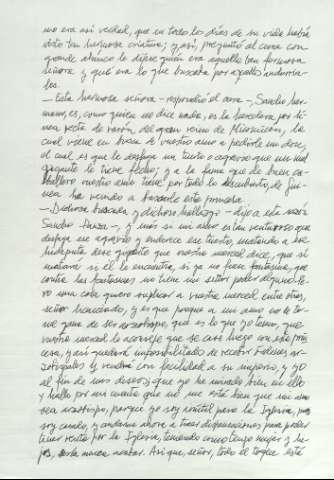 mo era así verdad, que en todos los días de su vida había
visto tan hermosa criatura; y así, preguntó al cura con
grande ahínco le dijese quién era aquella tan fermosa
señora y qué era lo que buscaba por aquellos andurria-
les.
— Esta hermosa señora — respondió el cura —, Sancho her-
mano, es, como quien no dice nada, es la heredera por lí-
nea recta de varón del gran reino de Micomicón, la
cual viene en busca de vuestro amo a pedirle un don,
el cual es que le desfaga un tuerto o agravio que un mal
gigante le tiene fecho; y a la fama que de buen ca-
ballero vuestro amo tiene por todo lo descubierto, de Gui-
nea ha venido a buscarle esta princesa.
— Dichosa buscada y dichoso hallazgo — dijo a esta sazón
Sancho Panza —, y más si mi amo es tan venturoso que
desfaga ese agravio y enderece ese tuerto, matando a ese
hideputa dese gigante que vuestra merced dice, que sí
matará si él le encuentra, si ya no fuese fantasma, que
contra las fantasmas no tiene mi señor poder alguno. Pe-
ro una cosa quiero suplicar a vuestra merced, entre otras,
señor licenciado, y es que porque a mi amo no le to-
me gana de ser arzobispo, que es lo que yo temo, que
vuestra merced le aconseje que se case luego con esta prin-
cesa, y así quedará imposibilitado de recibir órdenes ar-
zobispales y vendrá con facilidad a su imperio, y yo
al fin de mis deseos; que yo he mirado bien en ello
y hallo por mi cuenta que no me está bien que mi amo
sea arzobispo, porque yo soy inútil para la Iglesia, pues
soy casado, y andarme ahora a traer dispensaciones para poder
tener renta por la Iglesia, teniendo como tengo mujer y hi-
jos, sería nunca acabar. Así que, señor, todo el toque está